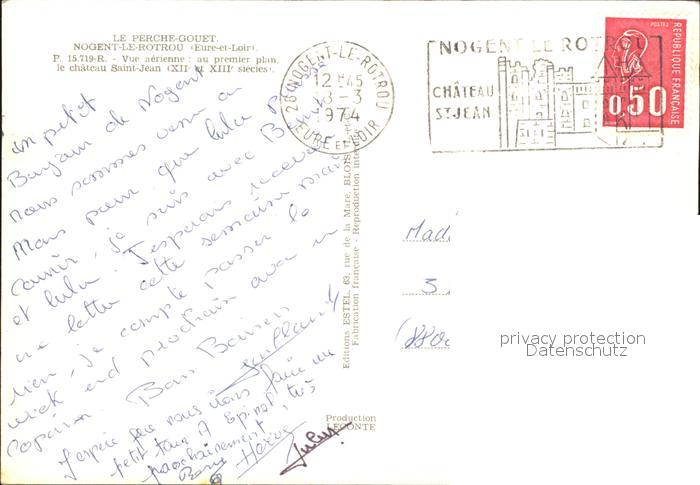 LE PERCHE-GOUET.
NOGENT-LE-ROTROU (Eure-et-Loir).
P. 15.719-R. - Vue aérienne : au premier plan,
le château Saint-Jean (XIIᵉ et XIIIᵉ siècles).
28 NOGENT-LE-ROTROU
12H45
-3
1974
EURE ET LOIR
NOGENT LE ROTROU
CHÂTEAU
ST JEAN
POSTES
RÉPUBLIQUE FRANÇAISE
0,50
un petit
Bonjour de Nogent
nous sommes venu
Mais pour que lulu
je suis avec
et lulu. J'esperais recevoir
une lettre cette semaine mais
rien, je compte passer le
week end prochain avec un
copain. Bons Baisers
J'espère que nous irons faire un
petit tour A Epinal très
prochainement,
Bons
Jules
Editions ESTEL, 63, rue de la Mare, BLOIS
Fabrication française - Reproduction inter
Production
LECONTE
Mad
3
(880
privacy protection
Datenschutz